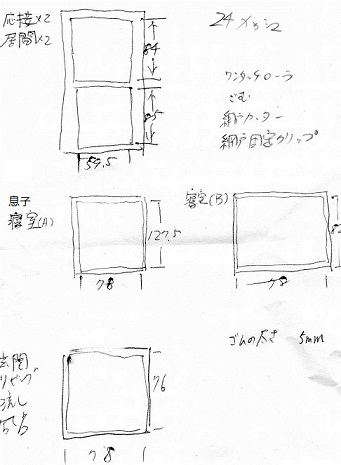 応接×2
居間×2
84
85
57.5
24メッシュ
ワンタッチローラ
ごむ
網戸カッター
網戸固定クリップ
息子
寝室(A)
127.5
78
寝室(B)
82
78
玄関
リビング
流し
76
78
ゴムの太さ 5mm